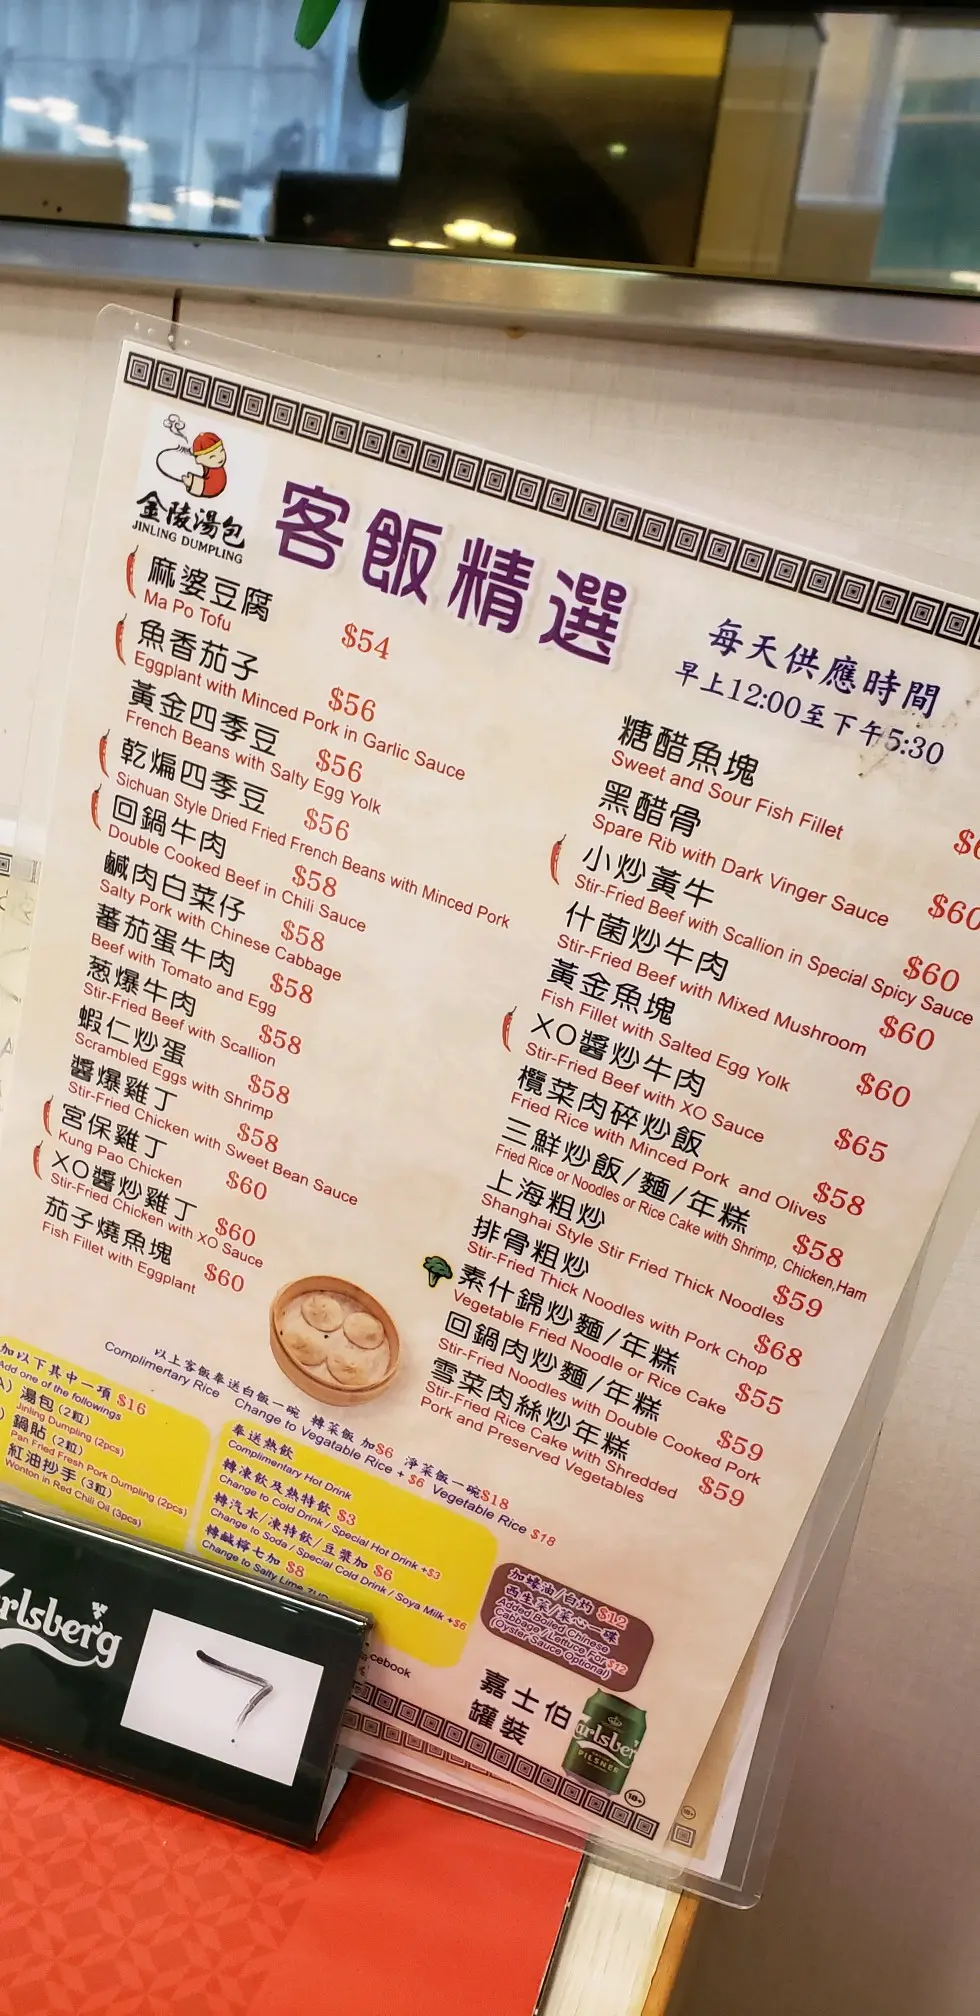 金陵湯包
JINLING DUMPLING
客飯精選
每天供應時間
早上12:00至下午5:30
麻婆豆腐
Ma Po Tofu $54
魚香茄子
Eggplant with Minced Pork in Garlic Sauce $56
黃金四季豆
French Beans with Salty Egg Yolk $56
乾煸四季豆
Sichuan Style Dried Fried French Beans with Minced Pork $56
回鍋牛肉
Double Cooked Beef in Chili Sauce $58
鹹肉白菜仔
Salty Pork with Chinese Cabbage $58
蕃茄蛋牛肉
Beef with Tomato and Egg $58
葱爆牛肉
Stir-Fried Beef with Scallion $58
蝦仁炒蛋
Scrambled Eggs with Shrimp $58
醬爆雞丁
Stir-Fried Chicken with Sweet Bean Sauce $58
宮保雞丁
Kung Pao Chicken $60
XO醬炒雞丁
Stir-Fried Chicken with XO Sauce $60
茄子燒魚塊
Fish Fillet with Eggplant $60
糖醋魚塊
Sweet and Sour Fish Fillet
黑醋骨
Spare Rib with Dark Vinger Sauce $60
小炒黃牛
Stir-Fried Beef with Scallion in Special Spicy Sauce $60
什菌炒牛肉
Stir-Fried Beef with Mixed Mushroom $60
黃金魚塊
Fish Fillet with Salted Egg Yolk $60
XO醬炒牛肉
Stir-Fried Beef with XO Sauce $65
欖菜肉碎炒飯
Fried Rice with Minced Pork and Olives $58
三鮮炒飯/麵/年糕
Fried Rice or Noodles or Rice Cake with Shrimp, Chicken,Ham $58
上海粗炒
Shanghai Style Stir Fried Thick Noodles $59
排骨粗炒
Stir-Fried Thick Noodles with Pork Chop $68
素什錦炒麵/年糕
Vegetable Fried Noodle or Rice Cake $55
回鍋肉炒麵/年糕
Stir-Fried Noodles with Double Cooked Pork $59
雪菜肉絲炒年糕
Stir-Fried Rice Cake with Shredded $59
Pork and Preserved Vegetables
以上客飯奉送白飯一碗 轉菜飯 加$6 淨菜飯一碗$18
Complimertary Rice Change to Vegatable Rice + $6 Vegetable Rice $18
加以下其中一項 $16
Add one of the followings
湯包 (2粒)
Jinling Dumpling (2pcs)
鍋貼 (2粒)
Pan Fried Fresh Pork Dumpling (2pcs)
紅油抄手 (3粒)
Wonton in Red Chili Oil (3pcs)
奉送熱飲
Complimentary Hot Drink
轉凍飲及熱特飲 $3
Change to Cold Drink / Special Hot Drink +$3
轉汽水/凍特飲/豆漿加 $6
Change to Soda / Special Cold Drink / Soya Milk +$6
轉鹹檸七加 $8
Change to Salty Lime
加蠔油/白灼 $12
西生菜/菜心一碟
Added Boiled Chinese
Cabbage / Lettuce For $12
(Oyster Sauce Optional)
cebook
嘉士伯
罐裝
Carlsberg
PILSNER
18+
Carlsberg
7